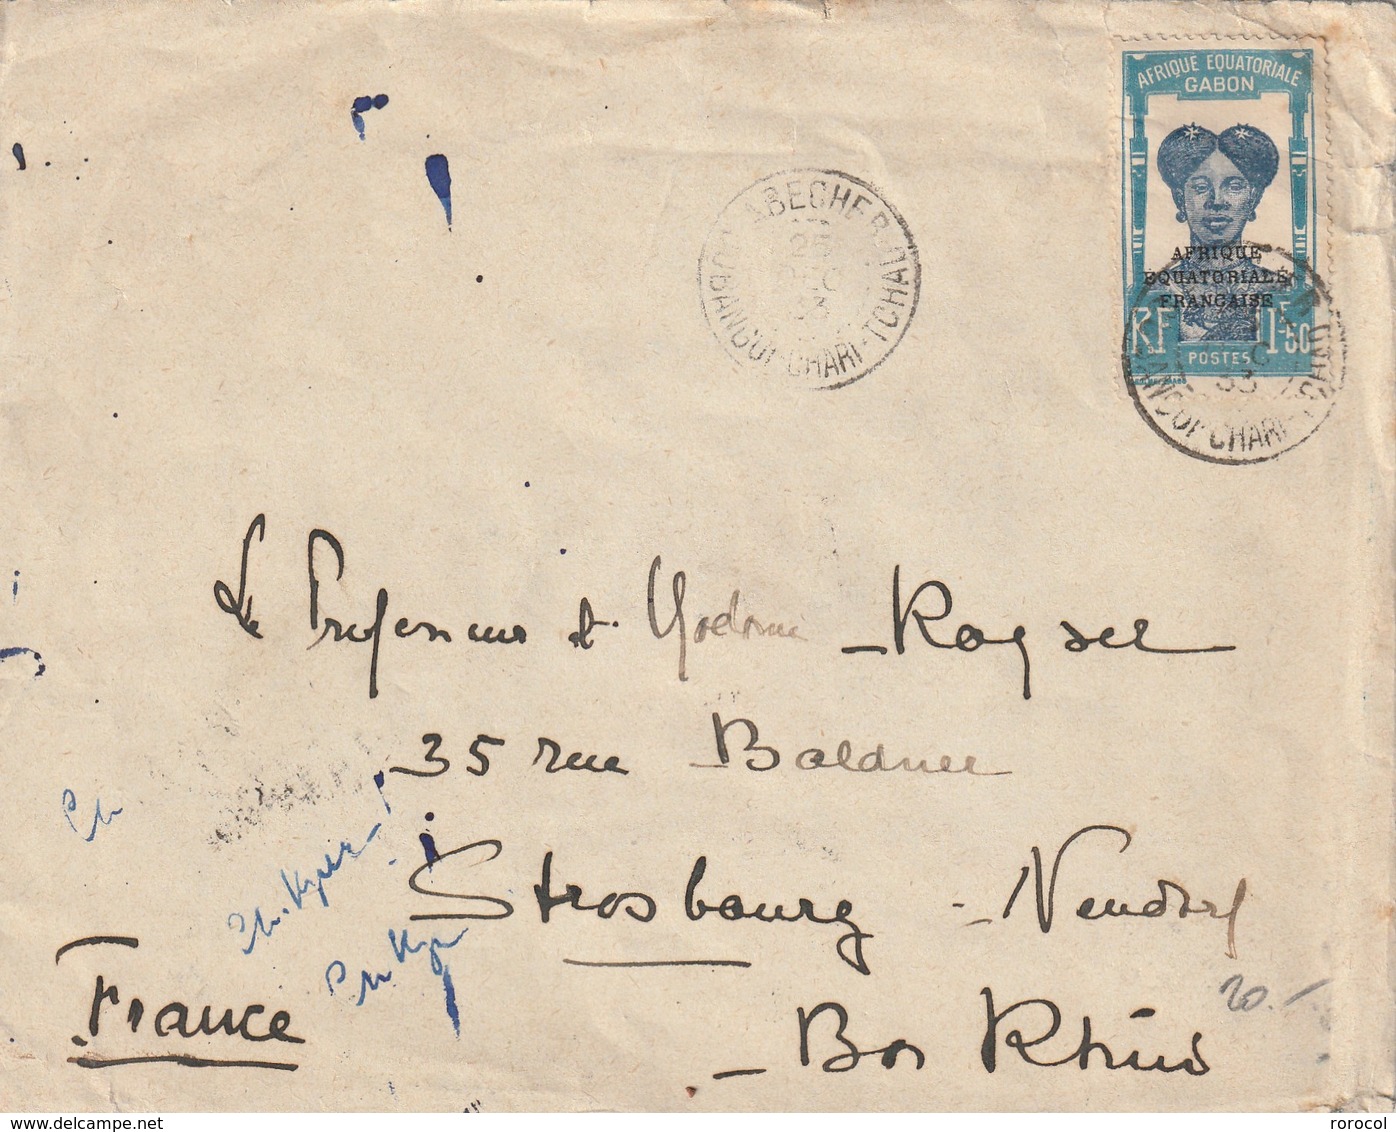 AFRIQUE EQUATORIALE
GABON
AFRIQUE
EQUATORIALE
FRANÇAISE
RF 1F50
POSTES
ABECHER
OUBANGUI-CHARI-TCHAD
25
DEC
33
CHARI-TCHAD
33
Le Professeur et Madame Kayser
35 rue Baldner
Strasbourg - Neudorf
France
Bas Rhin
20.-
delcampe.net
rorocol